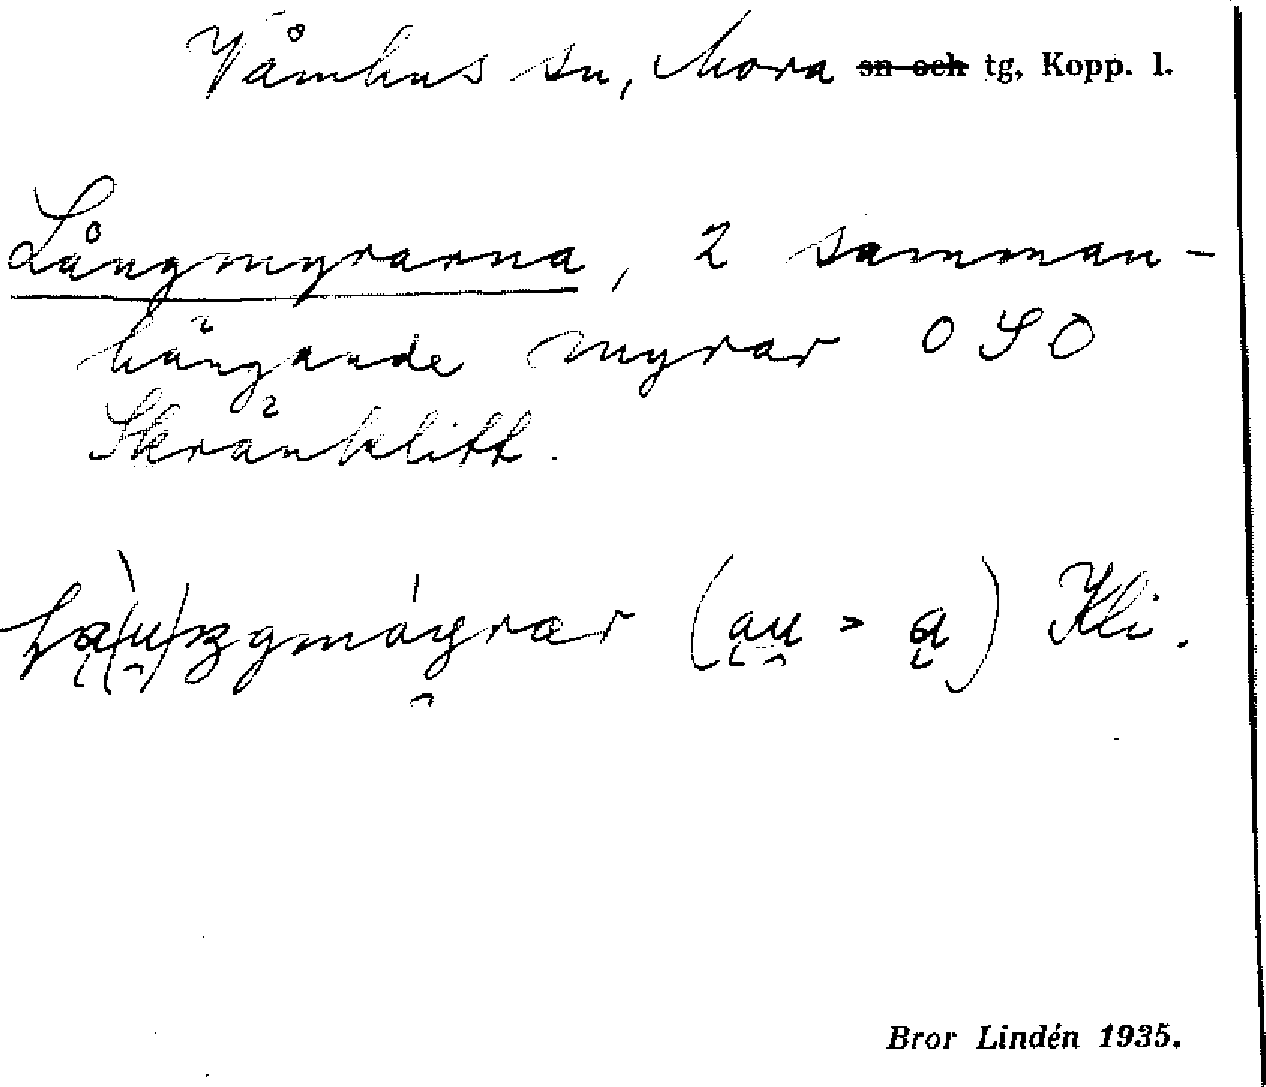 Våmhus sn, Mora sn och tg, Kopp. l.
Långmyrarna, 2 samman-
hängande myrar OSO
Skränklitt.
(au > a) Kli.
Bror Lindén 1935.